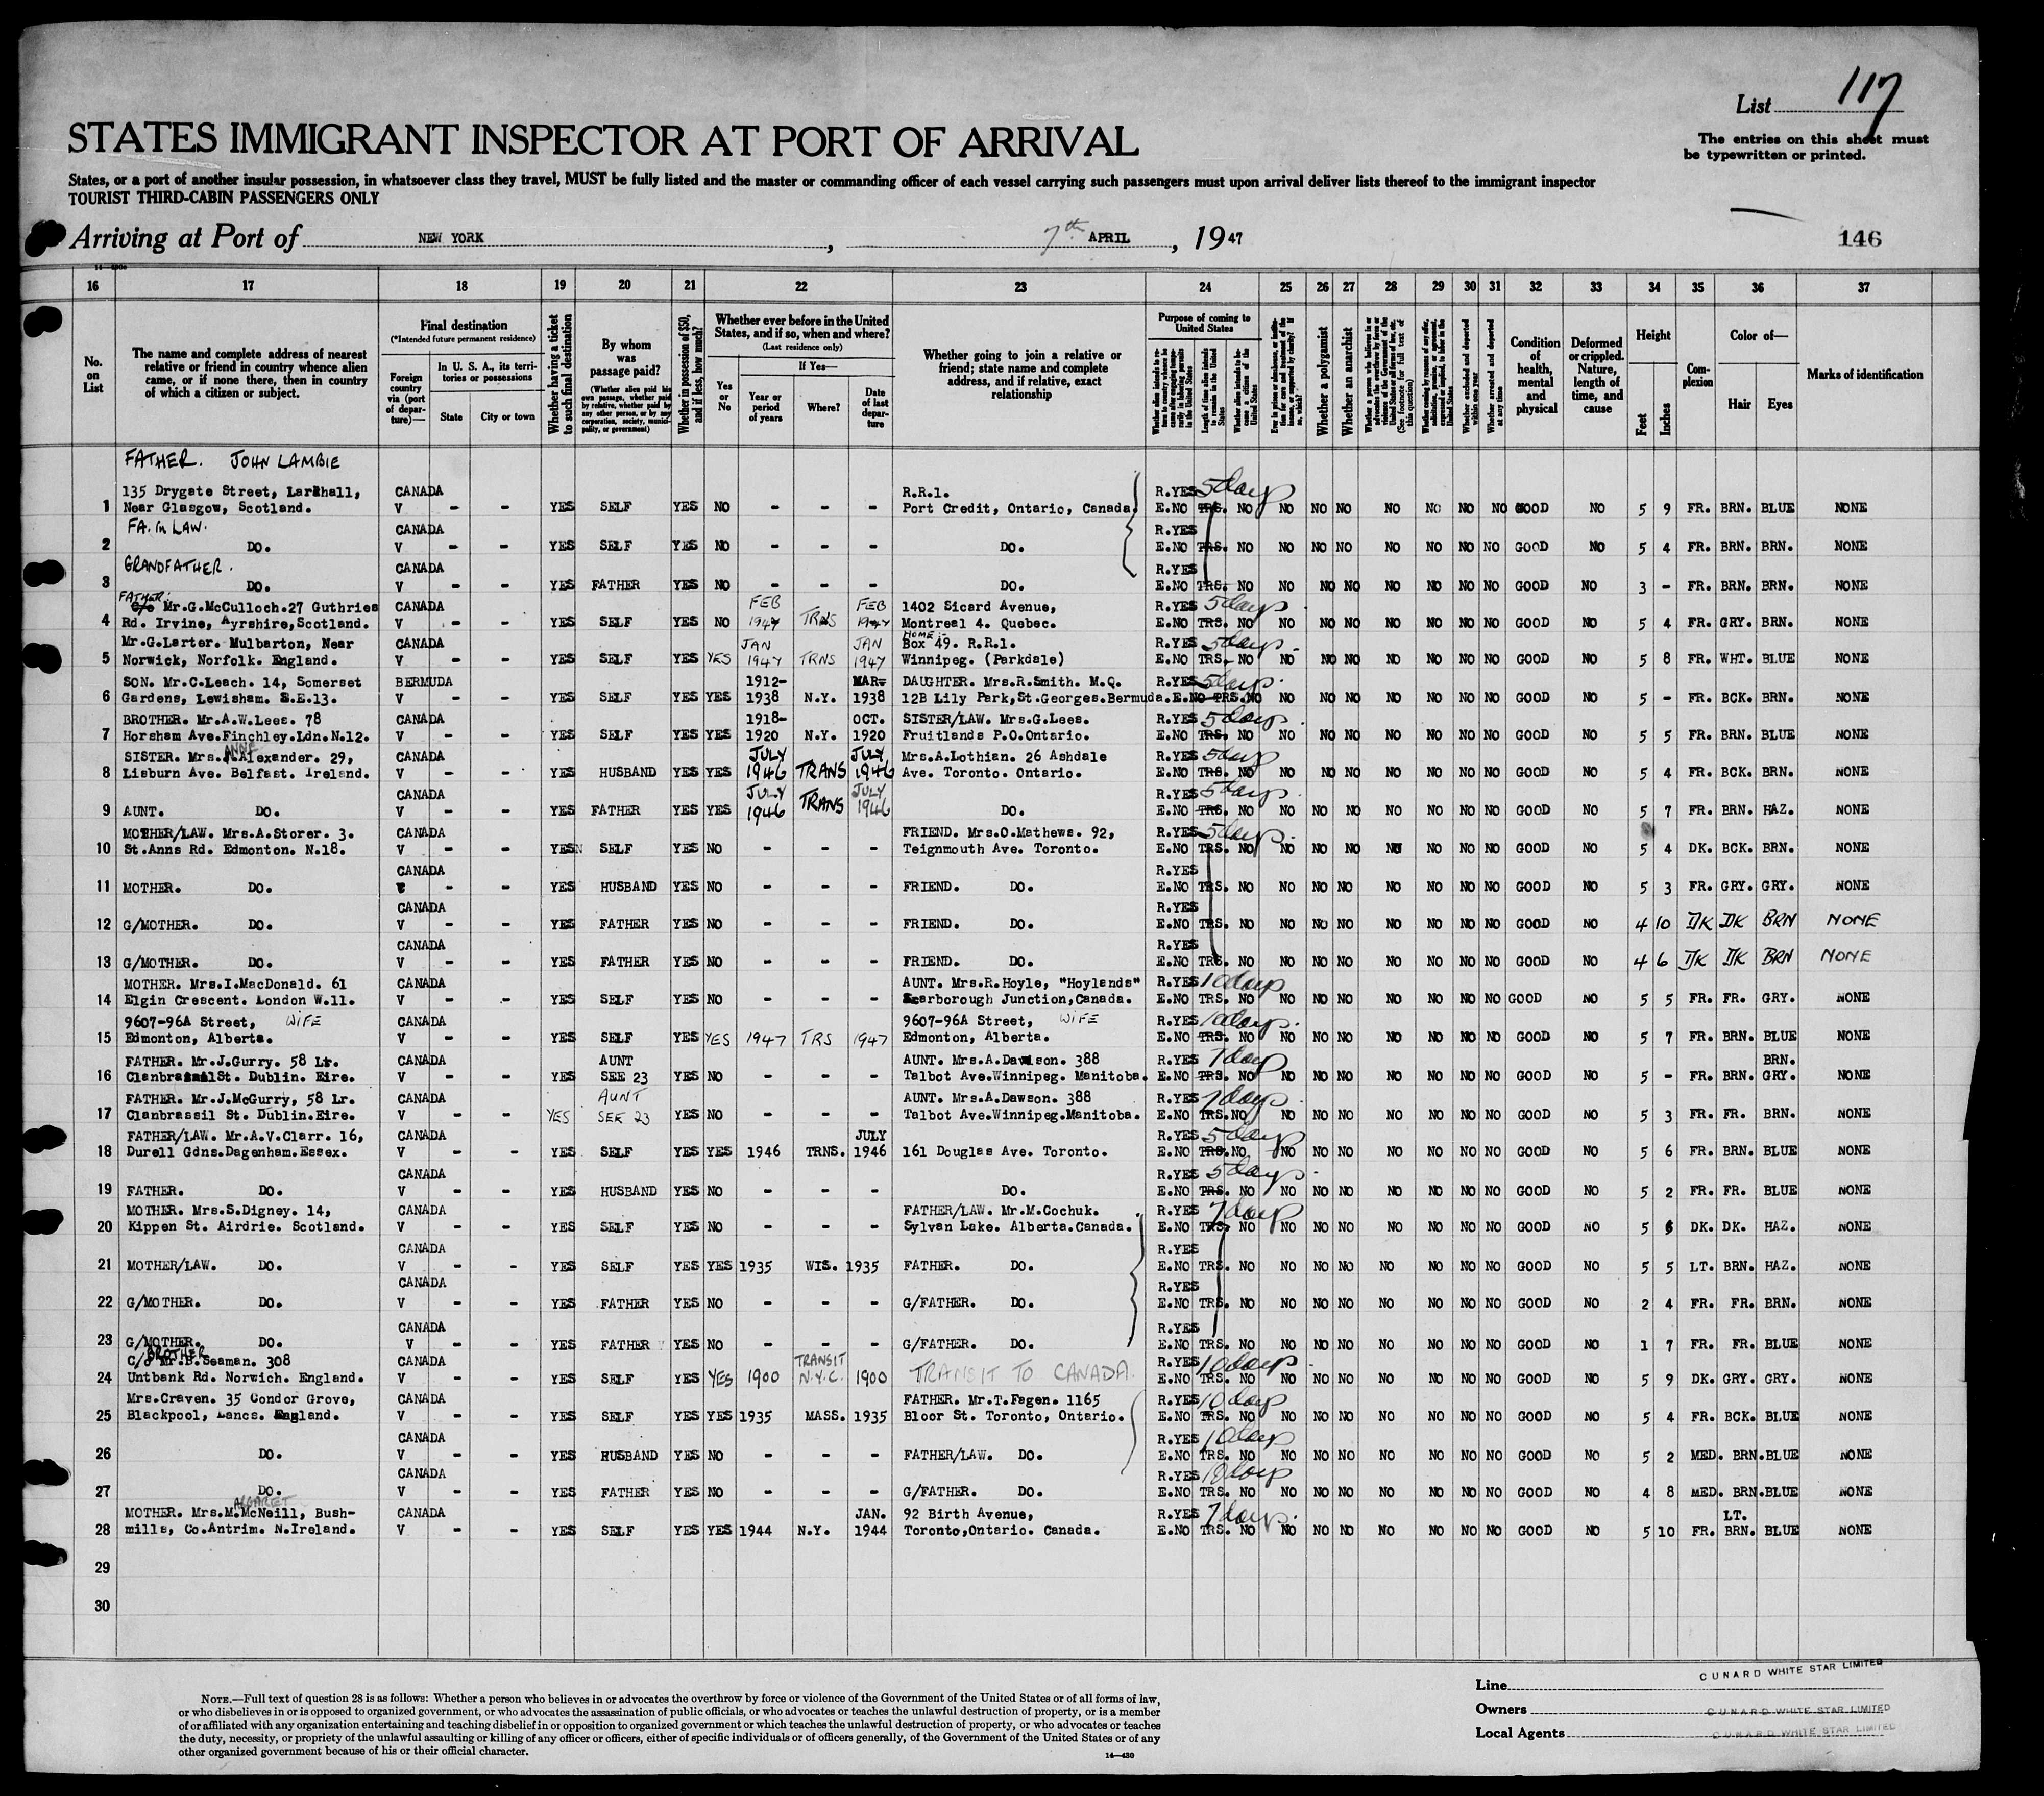 List 117
STATES IMMIGRANT INSPECTOR AT PORT OF ARRIVAL
The entries on this sheet must
be typewritten or printed.
States, or a port of another insular possession, in whatsoever class they travel, MUST be fully listed and the master or commanding officer of each vessel carrying such passengers must upon arrival deliver lists thereof to the immigrant inspector
TOURIST THIRD-CABIN PASSENGERS ONLY
Arriving at Port of NEW YORK, 7th APRIL, 1947
146
16 17 18 19 20 21 22 23 24 25 26 27 28 29 30 31 32 33 34 35 36 37
No. on List
The name and complete address of nearest relative or friend in country whence alien came, or if none there, then in country of which a citizen or subject.
Final destination
(*Intended future permanent residence)
Foreign country via (port of departure)—
In U. S. A., its territories or possessions
State
City or town
Whether having a ticket to such final destination
By whom was passage paid?
(Whether alien paid his own passage, whether paid by relative, whether paid by any other person, or by any corporation, society, municipality, or government)
Whether in possession of $50, and if less, how much?
Whether ever before in the United States, and if so, when and where?
(Last residence only)
Yes or No
If Yes—
Year or period of years
Where?
Date of last departure
Whether going to join a relative or friend; state name and complete address, and if relative, exact relationship
Purpose of coming to United States
Length of time alien intends to remain in the United States
Whether alien intends to become a citizen of the United States
Whether a polygamist
Whether an anarchist
Whether excluded and deported within one year
Whether arrested and deported at any time
Condition of health, mental and physical
Deformed or crippled. Nature, length of time, and cause
Height
Feet
Inches
Complexion
Color of—
Hair
Eyes
Marks of identification
FATHER. JOHN LAMBIE
135 Drygate Street, Larkhall, CANADA R.R.1. R.YES 5 days
1 Near Glasgow, Scotland. V - - YES SELF YES NO - - - Port Credit, Ontario, Canada. E.NO TRS. NO NO NO NO NO NO NO NO GOOD NO 5 9 FR. BRN. BLUE NONE
FA. in LAW. CANADA R.YES
2 DO. V - - YES SELF YES NO - - - DO. E.NO TRS. NO NO NO NO NO NO NO NO GOOD NO 5 4 FR. BRN. BRN. NONE
GRANDFATHER. CANADA R.YES
3 DO. V - - YES FATHER YES NO - - - DO. E.NO TRS. NO NO NO NO NO NO NO NO GOOD NO 3 - FR. BRN. BRN. NONE
FATHER:
C/o Mr.G.McCulloch.27 Guthries CANADA FEB FEB 1402 Sicard Avenue, R.YES 5 days
4 Rd. Irvine, Ayrshire,Scotland. V - - YES SELF YES NO 1947 TRNS 1947 Montreal 4. Quebec. E.NO TRS. NO NO NO NO NO NO NO NO GOOD NO 5 4 FR. GRY. BRN. NONE
HOME:-
Mr.G.Larter. Mulbarton, Near CANADA JAN JAN Box 49. R.R.1. R.YES 5 days
5 Norwick, Norfolk. England. V - - YES SELF YES YES 1947 TRNS 1947 Winnipeg. (Parkdale) E.NO TRS. NO NO NO NO NO NO NO NO GOOD NO 5 8 FR. WHT. BLUE NONE
SON. Mr.C.Leach. 14, Somerset BERMUDA 1912- MAR- DAUGHTER. Mrs.R.Smith. M.Q. R.YES 5 days
6 Gardens, Lewisham. S.E.13. V - - YES SELF YES YES 1938 N.Y. 1938 12B Lily Park,St.Georges.Bermuda. E.NO TRS. NO NO NO NO NO NO NO NO GOOD NO 5 - FR. BCK. BRN. NONE
BROTHER. Mr.A.W.Lees. 78 CANADA 1918- OCT. SISTER/LAW. Mrs.G.Lees. R.YES 5 days
7 Horsham Ave.Finchley.Ldn.N.12. V - - YES SELF YES YES 1920 N.Y. 1920 Fruitlands P.O.Ontario. E.NO TRS. NO NO NO NO NO NO NO NO GOOD NO 5 5 FR. BRN. BLUE NONE
ANNE
SISTER. Mrs. Alexander. 29, CANADA JULY JULY Mrs.A.Lothian. 26 Ashdale R.YES 5 days
8 Lisburn Ave. Belfast. Ireland. V - - YES HUSBAND YES YES 1946 TRANS 1946 Ave. Toronto. Ontario. E.NO TRS. NO NO NO NO NO NO NO NO GOOD NO 5 4 FR. BCK. BRN. NONE
CANADA JULY JULY R.YES 5 days
9 AUNT. DO. V - - YES FATHER YES YES 1946 TRANS 1946 DO. E.NO TRS. NO NO NO NO NO NO NO NO GOOD NO 5 7 FR. BRN. HAZ. NONE
MOTHER/LAW. Mrs.A.Storer. 3. CANADA FRIEND. Mrs.O.Mathews. 92, R.YES 5 days
10 St.Anns Rd. Edmonton. N.18. V - - YES SELF YES NO - - - Teignmouth Ave. Toronto. E.NO TRS. NO NO NO NO NO NO NO NO GOOD NO 5 4 DK. BCK. BRN. NONE
CANADA R.YES
11 MOTHER. DO. V - - YES HUSBAND YES NO - - - FRIEND. DO. E.NO TRS. NO NO NO NO NO NO NO NO GOOD NO 5 3 FR. GRY. GRY. NONE
CANADA R.YES
12 G/MOTHER. DO. V - - YES FATHER YES NO - - - FRIEND. DO. E.NO TRS. NO NO NO NO NO NO NO NO GOOD NO 4 10 DK DK BRN NONE
CANADA R.YES
13 G/MOTHER. DO. V - - YES FATHER YES NO - - - FRIEND. DO. E.NO TRS. NO NO NO NO NO NO NO NO GOOD NO 4 6 DK DK BRN NONE
MOTHER. Mrs.I.MacDonald. 61 CANADA AUNT. Mrs.R.Hoyle, "Hoylands" R.YES 10 days
14 Elgin Crescent. London W.11. V - - YES SELF YES NO - - - Scarborough Junction,Canada. E.NO TRS. NO NO NO NO NO NO NO NO GOOD NO 5 5 FR. FR. GRY. NONE
9607-96A Street, WIFE CANADA 9607-96A Street, WIFE R.YES 10 days.
15 Edmonton, Alberta. V - - YES SELF YES YES 1947 TRS 1947 Edmonton, Alberta. E.NO TRS. NO NO NO NO NO NO NO NO GOOD NO 5 7 FR. BRN. BLUE NONE
FATHER. Mr.J.Gurry. 58 Lr. CANADA AUNT AUNT. Mrs.A.Dawson. 388 R.YES 7 days BRN.
16 Clanbrassil St. Dublin. Eire. V - - YES SEE 23 YES NO - - - Talbot Ave.Winnipeg. Manitoba. E.NO TRS. NO NO NO NO NO NO NO NO GOOD NO 5 - FR. BRN. GRY. NONE
FATHER. Mr.J.McGurry, 58 Lr. CANADA AUNT AUNT. Mrs.A.Dawson. 388 R.YES 7 days.
17 Clanbrassil St. Dublin.Eire. V - - YES SEE 23 YES NO - - - Talbot Ave.Winnipeg.Manitoba. E.NO TRS.NO NO NO NO NO NO NO NO GOOD NO 5 3 FR. FR. BRN. NONE
FATHER/LAW. Mr.A.V.Clarr. 16, CANADA JULY R.YES 5 days
18 Durell Gdns.Dagenham.Essex. V - - YES SELF YES YES 1946 TRNS. 1946 161 Douglas Ave. Toronto. E.NO TRS.NO NO NO NO NO NO NO NO GOOD NO 5 6 FR. BRN. BLUE NONE
CANADA R.YES 5 days
19 FATHER. DO. V - - YES HUSBAND YES NO - - - DO. E.NO TRS. NO NO NO NO NO NO NO NO GOOD NO 5 2 FR. FR. BLUE NONE
MOTHER. Mrs.S.Digney. 14, CANADA FATHER/LAW. Mr.M.Cochuk. R.YES 7 days
20 Kippen St. Airdrie. Scotland. V - - YES SELF YES NO - - - Sylvan Lake. Alberta.Canada. E.NO TRS. NO NO NO NO NO NO NO NO GOOD NO 5 6 DK. DK. HAZ. NONE
CANADA R.YES
21 MOTHER/LAW. DO. V - - YES SELF YES YES 1935 WIS. 1935 FATHER. DO. E.NO TRS. NO NO NO NO NO NO NO NO GOOD NO 5 5 LT. BRN. HAZ. NONE
CANADA R.YES
22 G/MOTHER. DO. V - - YES FATHER YES NO - - - G/FATHER. DO. E.NO TRS. NO NO NO NO NO NO NO NO GOOD NO 2 4 FR. FR. BRN. NONE
CANADA R.YES
23 G/MOTHER. DO. V - - YES FATHER YES NO - - - G/FATHER. DO. E.NO TRS. NO NO NO NO NO NO NO NO GOOD NO 1 7 FR. FR. BLUE NONE
BROTHER
C/o Mr.B.Seaman. 308 CANADA TRANSIT R.YES 10 days
24 Unthank Rd. Norwich. England. V - - YES SELF YES YES 1900 N.Y.C. 1900 TRANSIT TO CANADA. E.NO TRS. NO NO NO NO NO NO NO NO GOOD NO 5 9 DK. GRY. GRY. NONE
Mrs.Craven. 35 Condor Grove, CANADA FATHER. Mr.T.Fagen. 1165 R.YES 10 days
25 Blackpool, Lancs. England. V - - YES SELF YES YES 1935 MASS. 1935 Bloor St. Toronto, Ontario. E.NO TRS. NO NO NO NO NO NO NO NO GOOD NO 5 4 FR. BCK. BLUE NONE
CANADA R.YES 10 days
26 DO. V - - YES HUSBAND YES NO - - - FATHER/LAW. DO. E.NO TRS. NO NO NO NO NO NO NO NO GOOD NO 5 2 MED. BRN.BLUE NONE
CANADA R.YES 10 days
27 DO. V - - YES FATHER YES NO - - - G/FATHER. DO. E.NO TRS. NO NO NO NO NO NO NO NO GOOD NO 4 8 MED. BRN.BLUE NONE
ARGARET
MOTHER. Mrs.M.McNeill, Bush- CANADA JAN. 92 Birth Avenue, R.YES 7 days. LT.
28 mills, Co.Antrim. N.Ireland. V - - YES SELF YES YES 1944 N.Y. 1944 Toronto,Ontario. Canada. E.NO TRS. NO NO NO NO NO NO NO NO GOOD NO 5 10 FR. BRN. BLUE NONE
29
30
NOTE.—Full text of question 28 is as follows: Whether a person who believes in or advocates the overthrow by force or violence of the Government of the United States or of all forms of law,
or who disbelieves in or is opposed to organized government, or who advocates the assassination of public officials, or who advocates or teaches the unlawful destruction of property, or is a member
of or affiliated with any organization entertaining and teaching disbelief in or opposition to organized government or which teaches the unlawful destruction of property, or who advocates or teaches
the duty, necessity, or propriety of the unlawful assaulting or killing of any officer or officers, either of specific individuals or of officers generally, of the Government of the United States or of any
other organized government because of his or their official character.
14—430
Line CUNARD WHITE STAR LIMITED
Owners CUNARD WHITE STAR LIMITED
Local Agents CUNARD WHITE STAR LIMITED